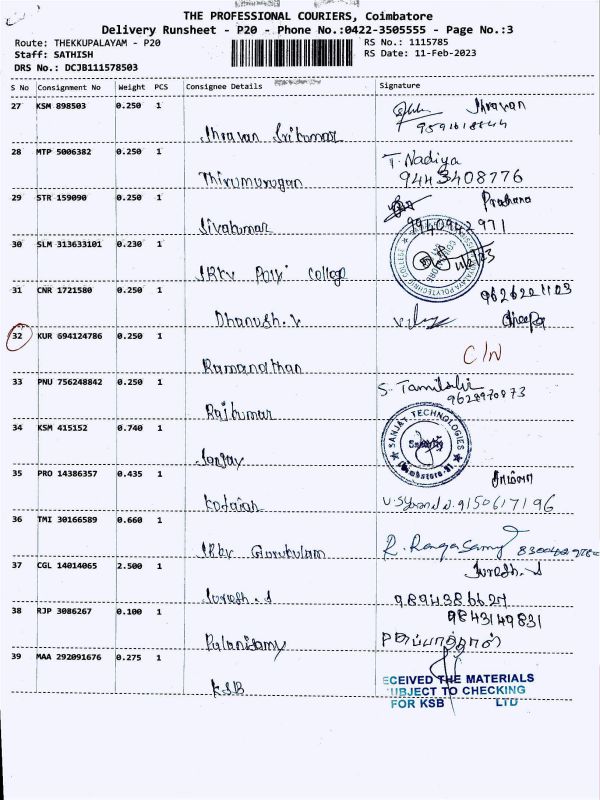 THE PROFESSIONAL COURIERS, Coimbatore
Delivery Runsheet - P20 - Phone No.:0422-3505555 - Page No.:3
Route: THEKKUPALAYAM - P20
RS No.: 1115785
Staff: SATHISH
RS Date: 11-Feb-2023
DRS No.: DCJB111578503
S No Consignment No Weight PCS Consignee Details Signature
27 KSM 898503 0.250 1
Shravan
Shravan Srikumar
28 MTP 5006382 0.250 1
T. Nadiya
9443408776
Thirumurugan
29 STR 159090 0.250 1
Sivakumar
7940942971
30 SLM 313633101 0.230 1
SRKV Poly College
31 CNR 1721580 0.250 1
Dhanush.V
32 KUR 694124786 0.250 1
C/N
Ramanathan
33 PNU 756248842 0.250 1
9628970873
Rajkumar
34 KSM 415152 0.740 1
SANJAY TECHNOLOGIES
Sanjay
35 PRO 14386357 0.435 1
9150617196
36 TMI 30166589 0.660 1
R. Rangasamy
SRKV Gurukulam
37 CGL 14014065 2.500 1
Suresh. S
Suresh. S
9894386627
38 RJP 3086267 0.100 1
9843149831
Palanisamy
39 MAA 292091676 0.275 1
KSB
ECEIVED THE MATERIALS
UBJECT TO CHECKING
FOR KSB LTD